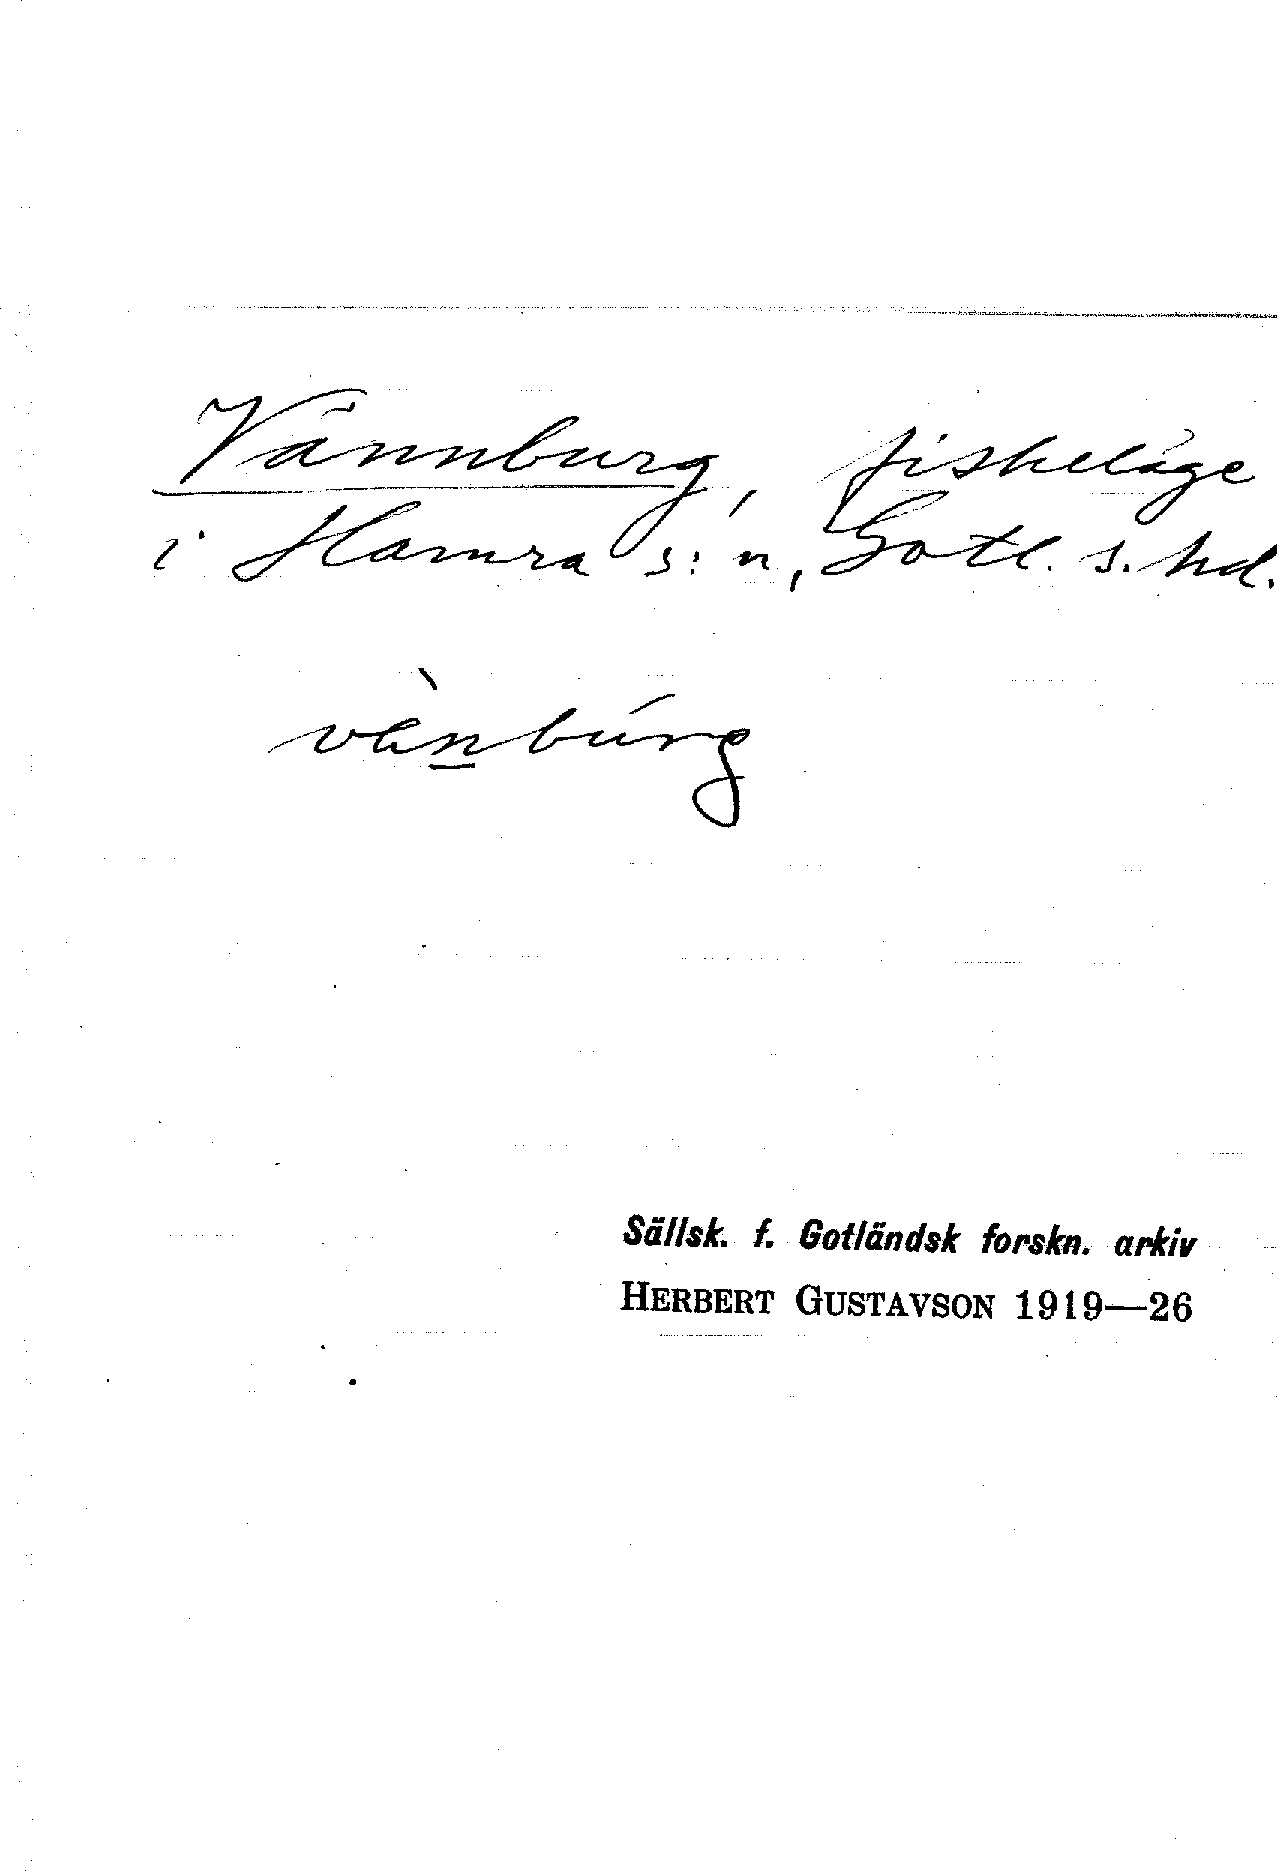 Vännburg, fiskeläge
i Hamra s:n, Gotl. s. hd.
vènbúrg
Sällsk. f. Gotländsk forskn. arkiv
HERBERT GUSTAVSON 1919—26